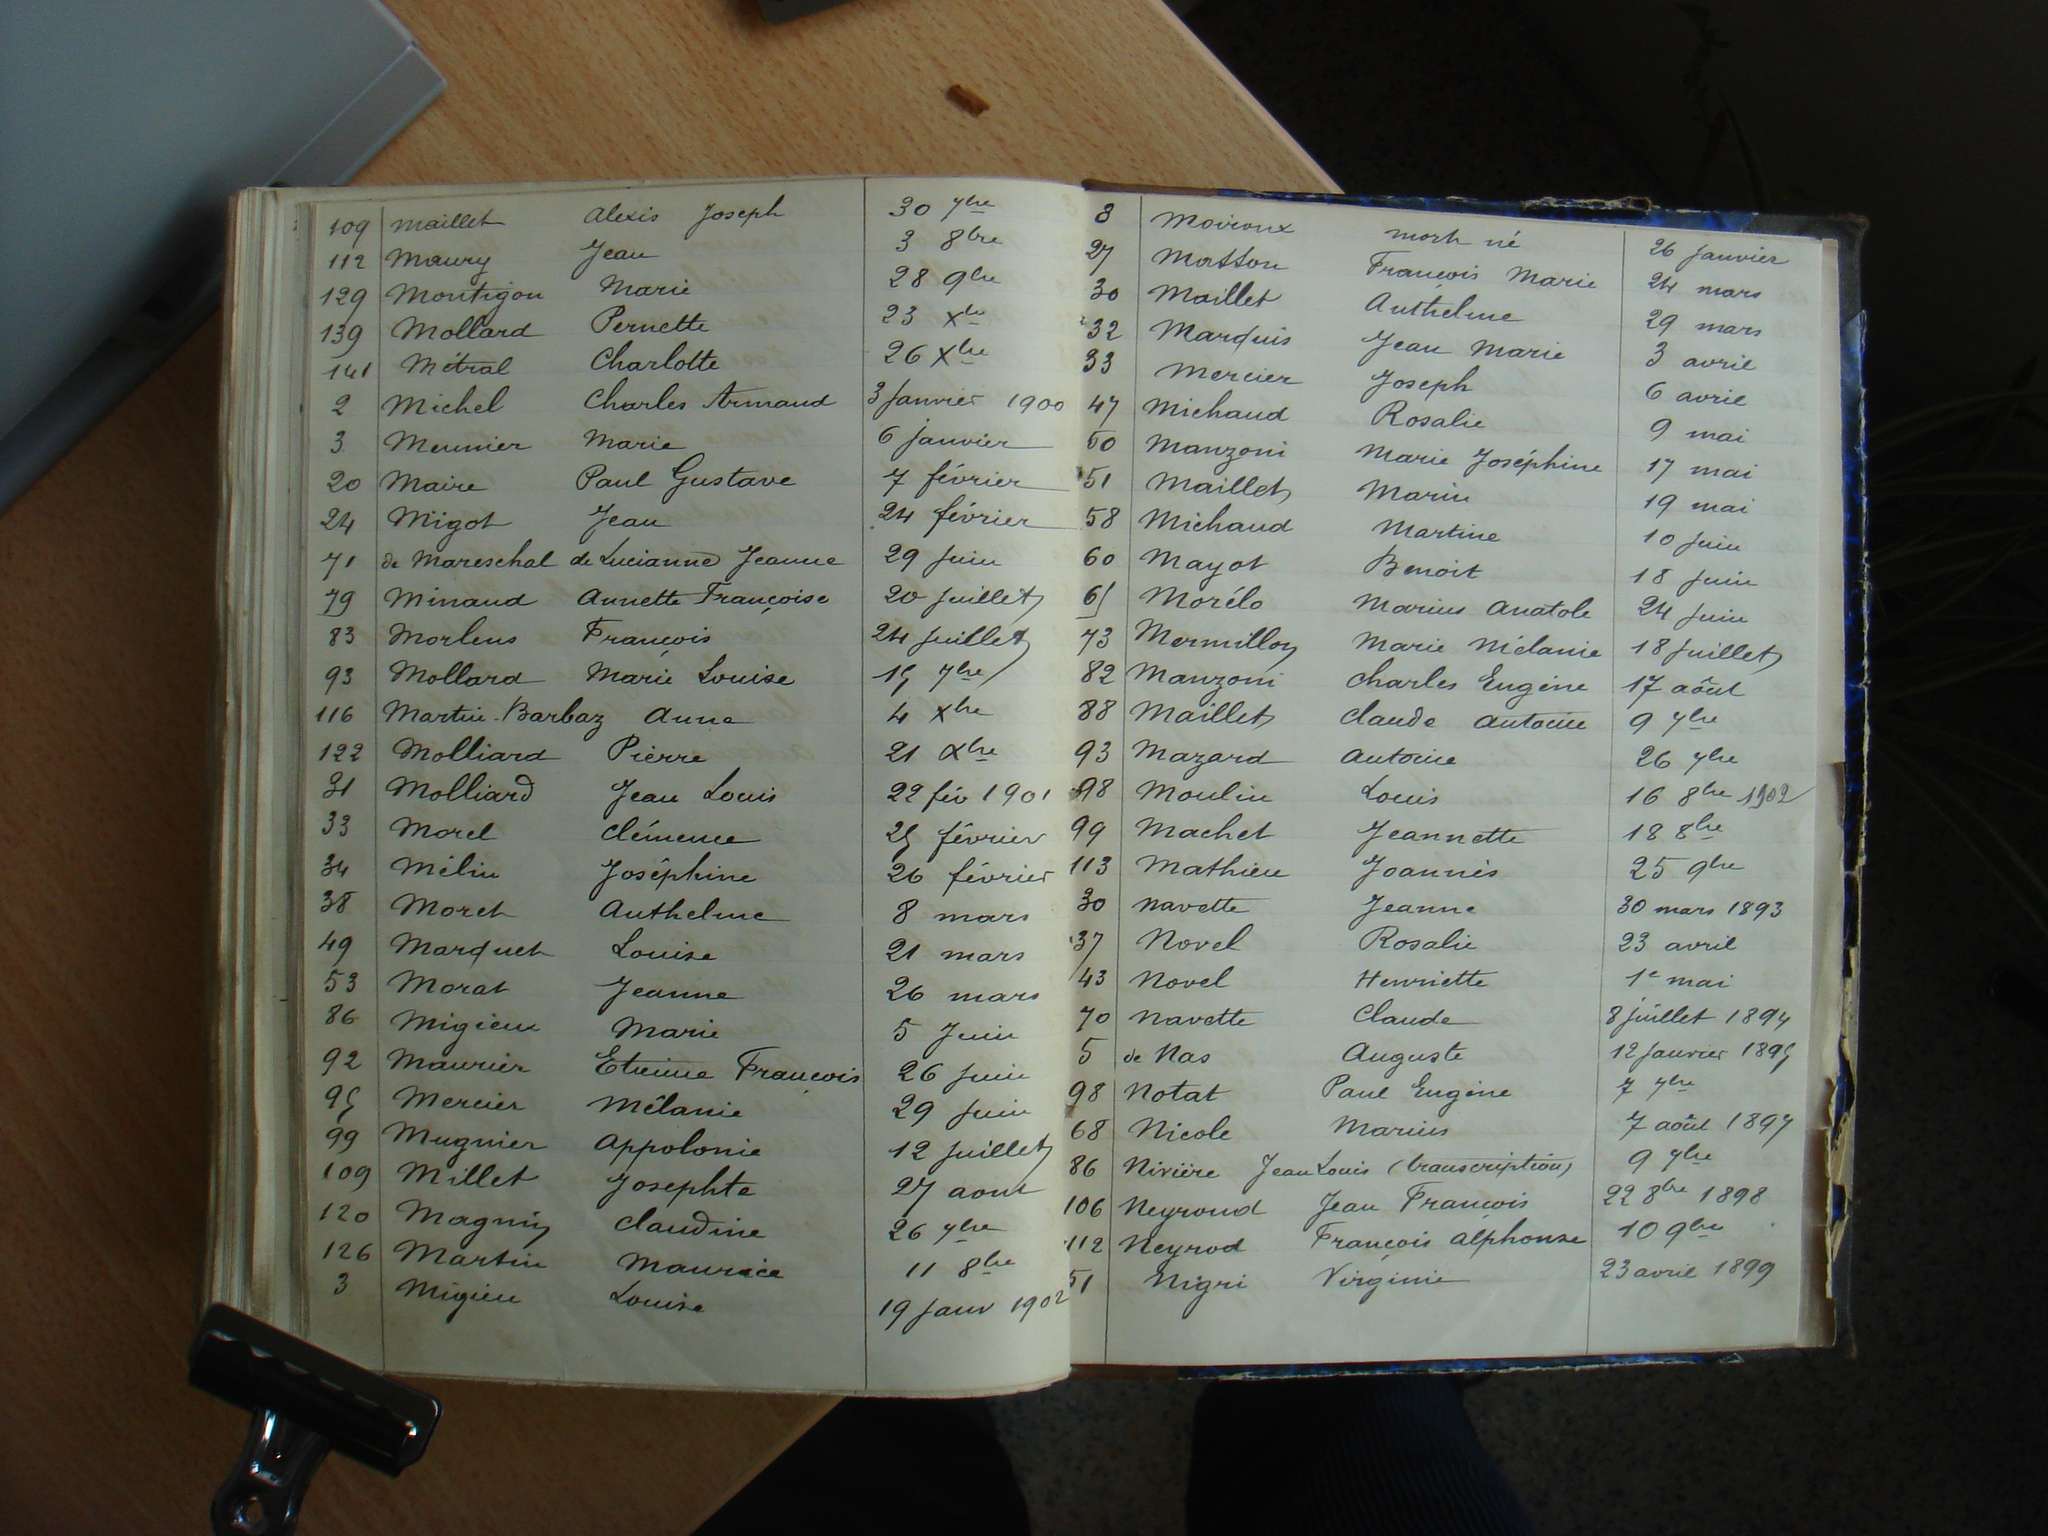 109 Maillet Alexis Joseph 30 7bre
112 Maury Jean 3 8bre
129 Montigon Marie 28 9bre
139 Mollard Pernette 23 Xbre
141 Métral Charlotte 26 Xbre
2 Michel Charles Armand 3 Janvier 1900
3 Meunier Marie 6 janvier
20 Maire Paul Gustave 7 février
24 Migot Jean 24 février
71 de Mareschal de Lucianne Jeanne 29 Juin
79 Minaud Annette Françoise 20 Juillet
83 Morlens François 24 Juillet
93 Mollard Marie Louise 15 7bre
116 Martin-Barbaz Anna 4 Xbre
122 Molliard Pierre 21 Xbre
31 Molliard Jean Louis 22 fév 1901
33 Morel Clémence 25 février
34 Mélin Joséphine 26 février
38 Moret Anthelme 8 mars
49 Marquet Louise 21 mars
53 Morat Jeanne 26 mars
86 Migieux Marie 5 Juin
92 Maurier Etienne François 26 Juin
95 Mercier Mélanie 29 Juin
99 Mugnier Appolonie 12 Juillet
109 Millet Josephte 27 aout
120 Magnin Claudine 26 7bre
126 Martin Maurice 11 8bre
3 Migieu Louise 19 Janv 1902
8 Moiroux mort né 26 Janvier
27 Masson François Marie 24 mars
30 Maillet Anthelme 29 mars
32 Marquis Jean Marie 3 avril
33 Mercier Joseph 6 avril
47 Michaud Rosalie 9 mai
50 Manzoni Marie Joséphine 17 mai
51 Maillet Marin 19 mai
58 Michaud Martine 10 Juin
60 Mayot Benoit 18 Juin
61 Morélo Marius Anatole 24 Juin
73 Mermillon Marie Mélanie 18 Juillet
82 Manzoni Charles Eugène 17 août
88 Maillet Claude Antoine 9 7bre
93 Mazard Antoine 26 7bre
98 Moulin Louis 16 8bre 1902
99 Machet Jeannette 18 8bre
113 Mathieu Joannès 25 9bre
30 Navette Jeanne 30 mars 1893
37 Novel Rosalie 23 avril
43 Novel Henriette 1e mai
70 Navette Claude 8 juillet 1894
5 de Nas Auguste 12 Janvier 1895
98 Notat Paul Eugène 7 7bre
68 Nicole Marius 7 août 1897
86 Nivière Jean Louis (transcription) 9 7bre
106 Neyroud Jean François 22 8bre 1898
112 Neyrod François Alphonse 10 9bre
51 Nigri Virginie 23 avril 1899